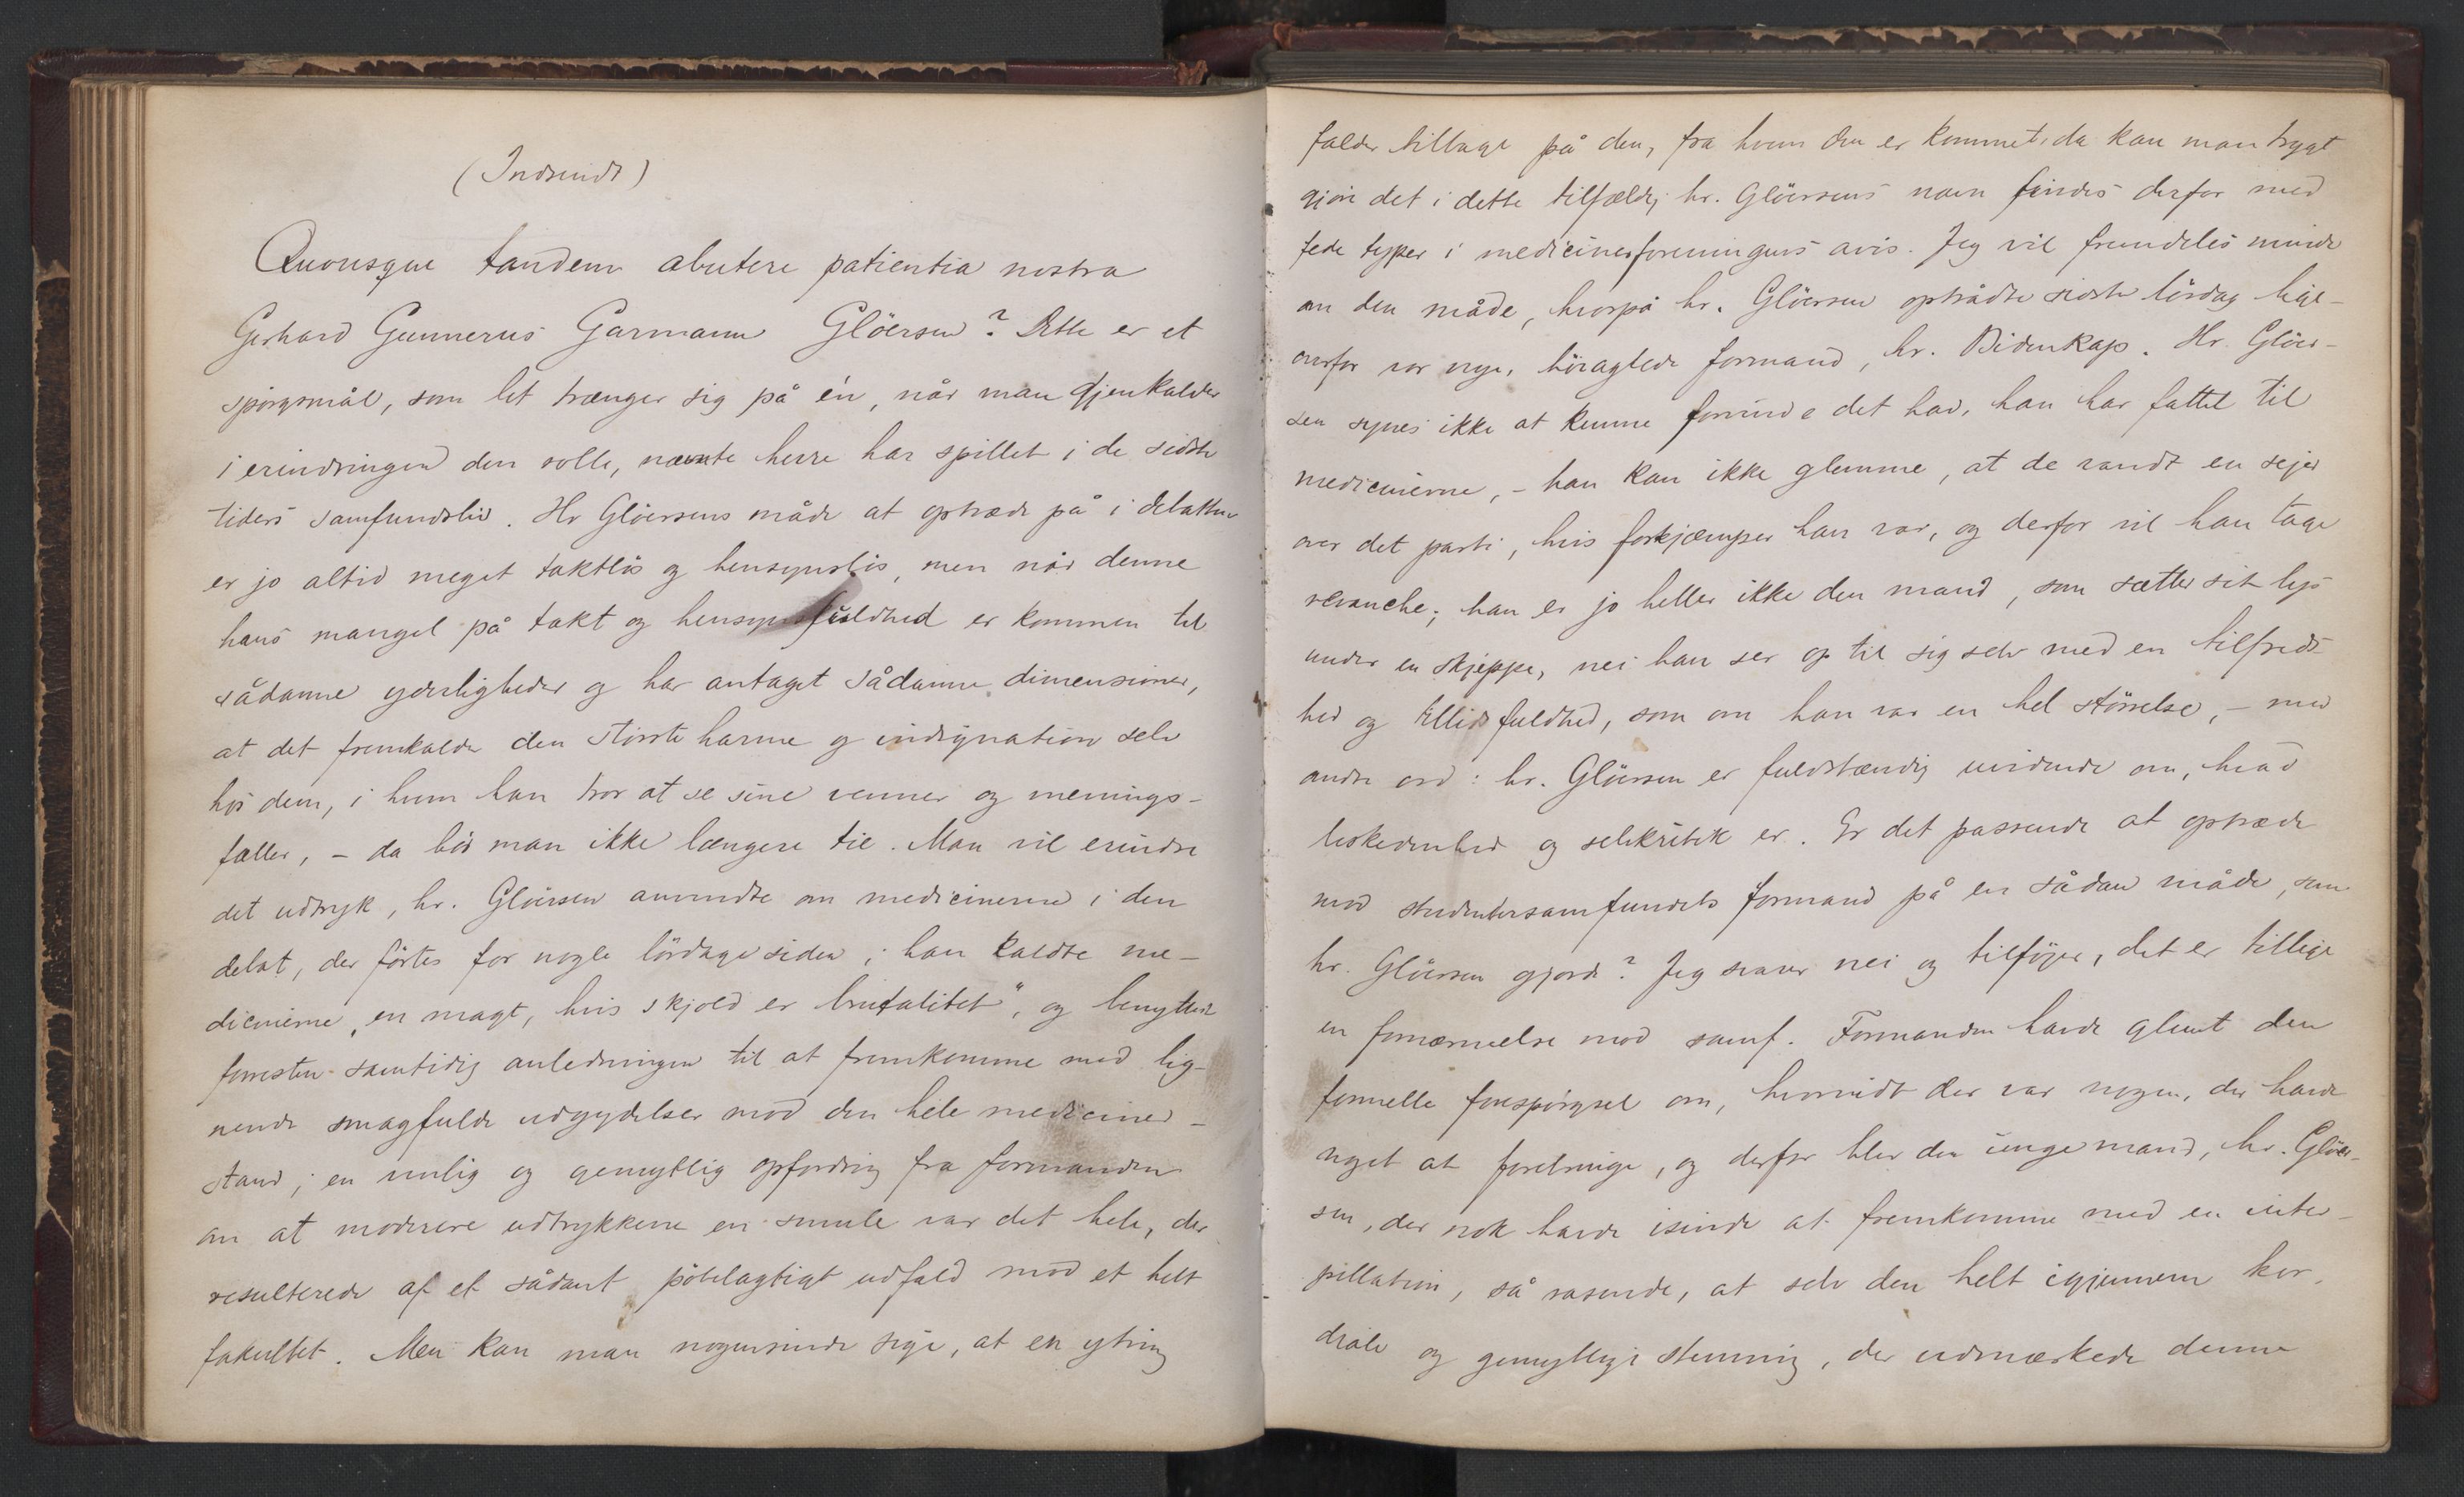 (Indsendt)
Quousque tandem abutere patientia nostra
Gerhard Gunnerus Garmann Glöersen? Dette er et
spörgsmål, som let trænger sig på én, når man gjenkalder
i erindringen den rolle, nævnte herre har spillet i de sidste
tiders samfundsliv. Hr Glöersens måde at optræde på i debatten
er jo altid meget taktlös og hensynslös, men når denne
hans mangel på takt og hensynsfuldhed er kommen til
sådanne yderligheder og har antaget sådanne dimensioner,
at det fremkalder den störste harme og indignation selv
hos dem, i hvem han tror at se sine venner og menings-
fæller, – da bör man ikke længere tie. Man vil erindre
det udtryk, hr. Glöersen anvendte om medicinerne i den
debat, der förtes for nogle lördage siden; han kaldte me-
dicinerne „en magt, hvis skjold er brutalitet", og benyttede
forresten samtidig anledningen til at fremkomme med lig-
nende smagfulde udgydelser mod den hele mediciner-
stand; en rolig og gemytlig opfordring fra formanden
om at moderere udtrykkene en smule var det hele, der
resulterede af et sådant pöbelagtigt udfald mod et helt
fakultet. Men kan man nogensinde sige, at en ytring
falder tilbage på den, fra hvem den er kommet, da kan man trygt
gjöre det i dette tilfælde; hr. Glöersens navn findes derfor med
fede typer i medicinerforeningens avis. Jeg vil fremdeles minde
om den måde, hvorpå hr. Glöersen optrådte sidste lördag lige-
overfor vor nye, höiagtede formand, hr. Bidenkap. Hr. Glöer-
sen synes ikke at kunne forvinde det had, han har fattet til
medicinerne, – han kan ikke glemme, at de vandt en sejer
over det parti, hvis forkjæmper han var, og derfor vil han tage
revanche; han er jo heller ikke den mand, som sætter sit lys
under en skjeppe, nei han ser op til sig selv med en tilfreds-
hed og tillidsfuldhed, som om han var en hel störrelse, – med
andre ord: hr. Glöersen er fuldstændig uvidende om, hvad
beskedenhed og selvkritik er. Er det passende at optræde
mod studentersamfundets formand på en sådan måde, som
hr. Glöersen gjorde? Jeg svarer nei og tilföjer, det er tillige
en fornærmelse mod samf. Formanden havde glemt den
formelle forespörgsel om, hvorvidt der var nogen, der havde
noget at forebringe, og derfor blev den unge mand, hr. Glöer-
sen, der nok havde isinde at fremkomme med en inter-
pillation, så rasende, at selv den helt igjennem kor-
diale og gemytlige stemning, der udmærkede denne